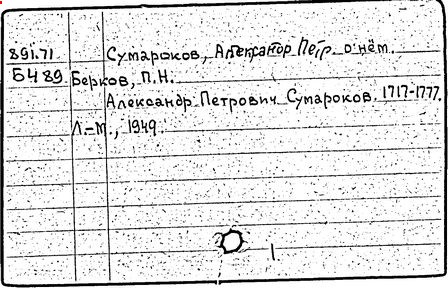 891.71 Сумароков, Александр Петр. о нём.
Б489 Берков, П.Н.
Александр Петрович Сумароков. 1717-1777.
Л.-М., 1949.